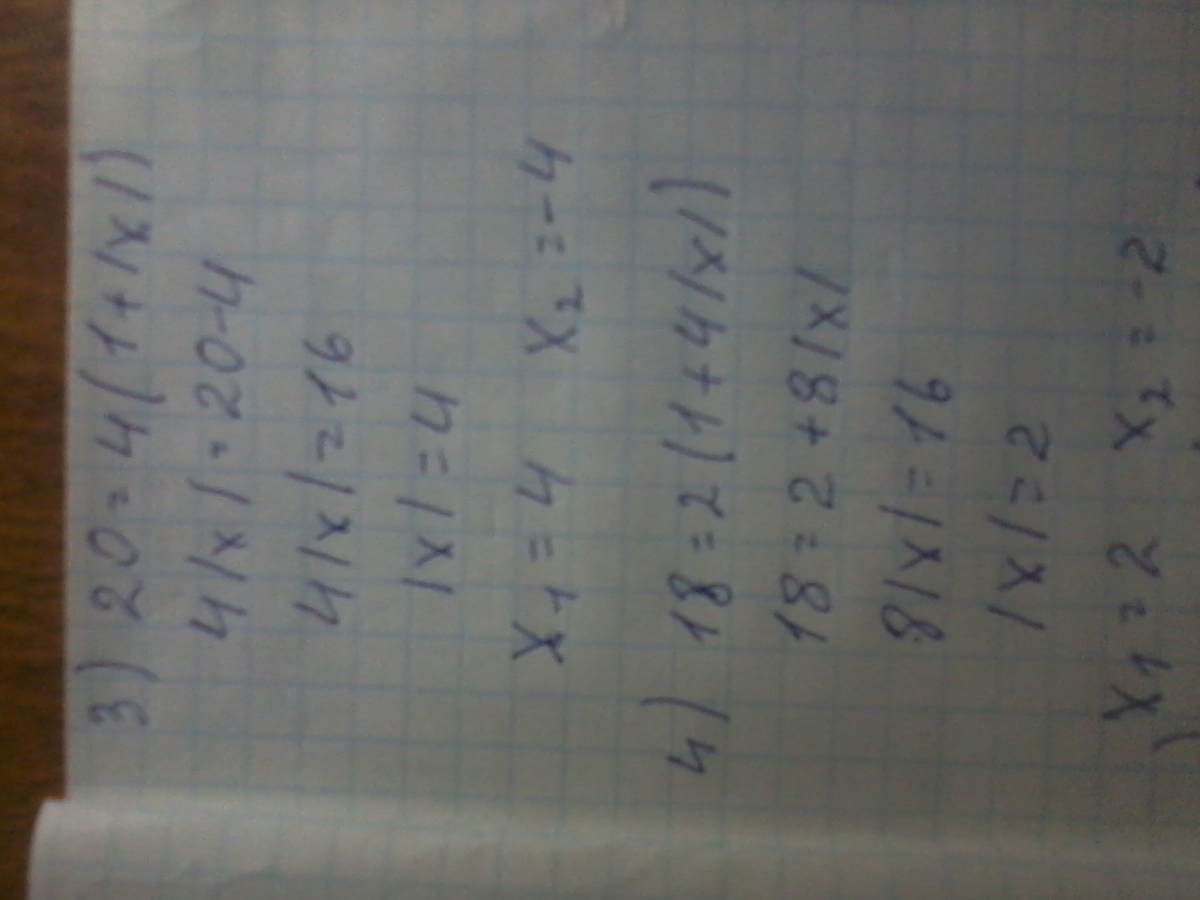 3) 20=4(1+|x|)
4|x|=20-4
4|x|=16
|x|=4
x₁=4 x₂=-4
4) 18=2(1+4|x|)
18=2+8|x|
8|x|=16
|x|=2
x₁=2 x₂=-2
)